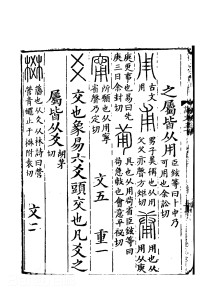 之屬皆从用 臣鉉等曰卜中乃可用也余訟切
古文用 甫 男子美稱也从用父父亦聲方矩切 庸 用也从用从庚
庚更事也易曰先庚三日余封切 𤰈 具也从用苟省臣鉉等曰苟急敕也會意平祕切
甯 所願也从用寧省聲乃定切
文五 重一
爻 交也象易六爻頭交也凡爻之
屬皆从爻 胡茅切
棥 藩也从爻从林詩曰營營青蠅止于棥附袁切
文二